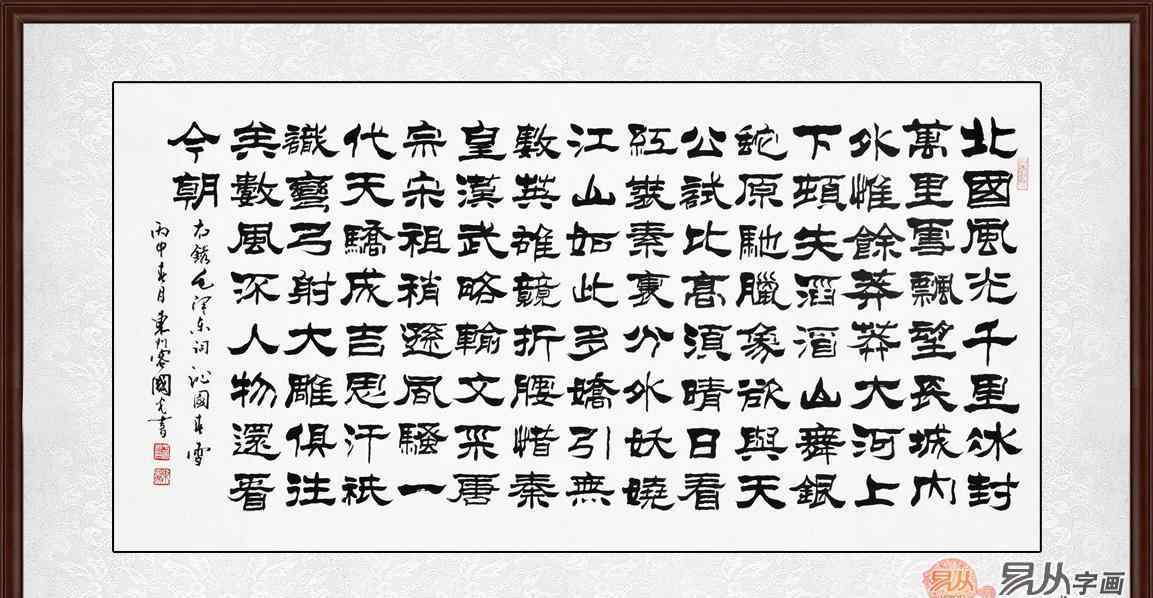 北國風光千里冰封
萬里雪飄望長城内
外惟餘莽莽大河上
下頓失滔滔山舞銀
蛇原馳臘象欲與天
公試比高須晴日看
紅裝素裹分外妖嬈
江山如此多嬌引無
數英雄競折腰惜秦
皇漢武略輸文采唐
宗宋祖稍遜風騷一
代天驕成吉思汗祇
識彎弓射大雕俱往
矣數風流人物還看
今朝
右錄毛泽东词沁園春雪
丙申春月東川客國光書
易从
易从字画